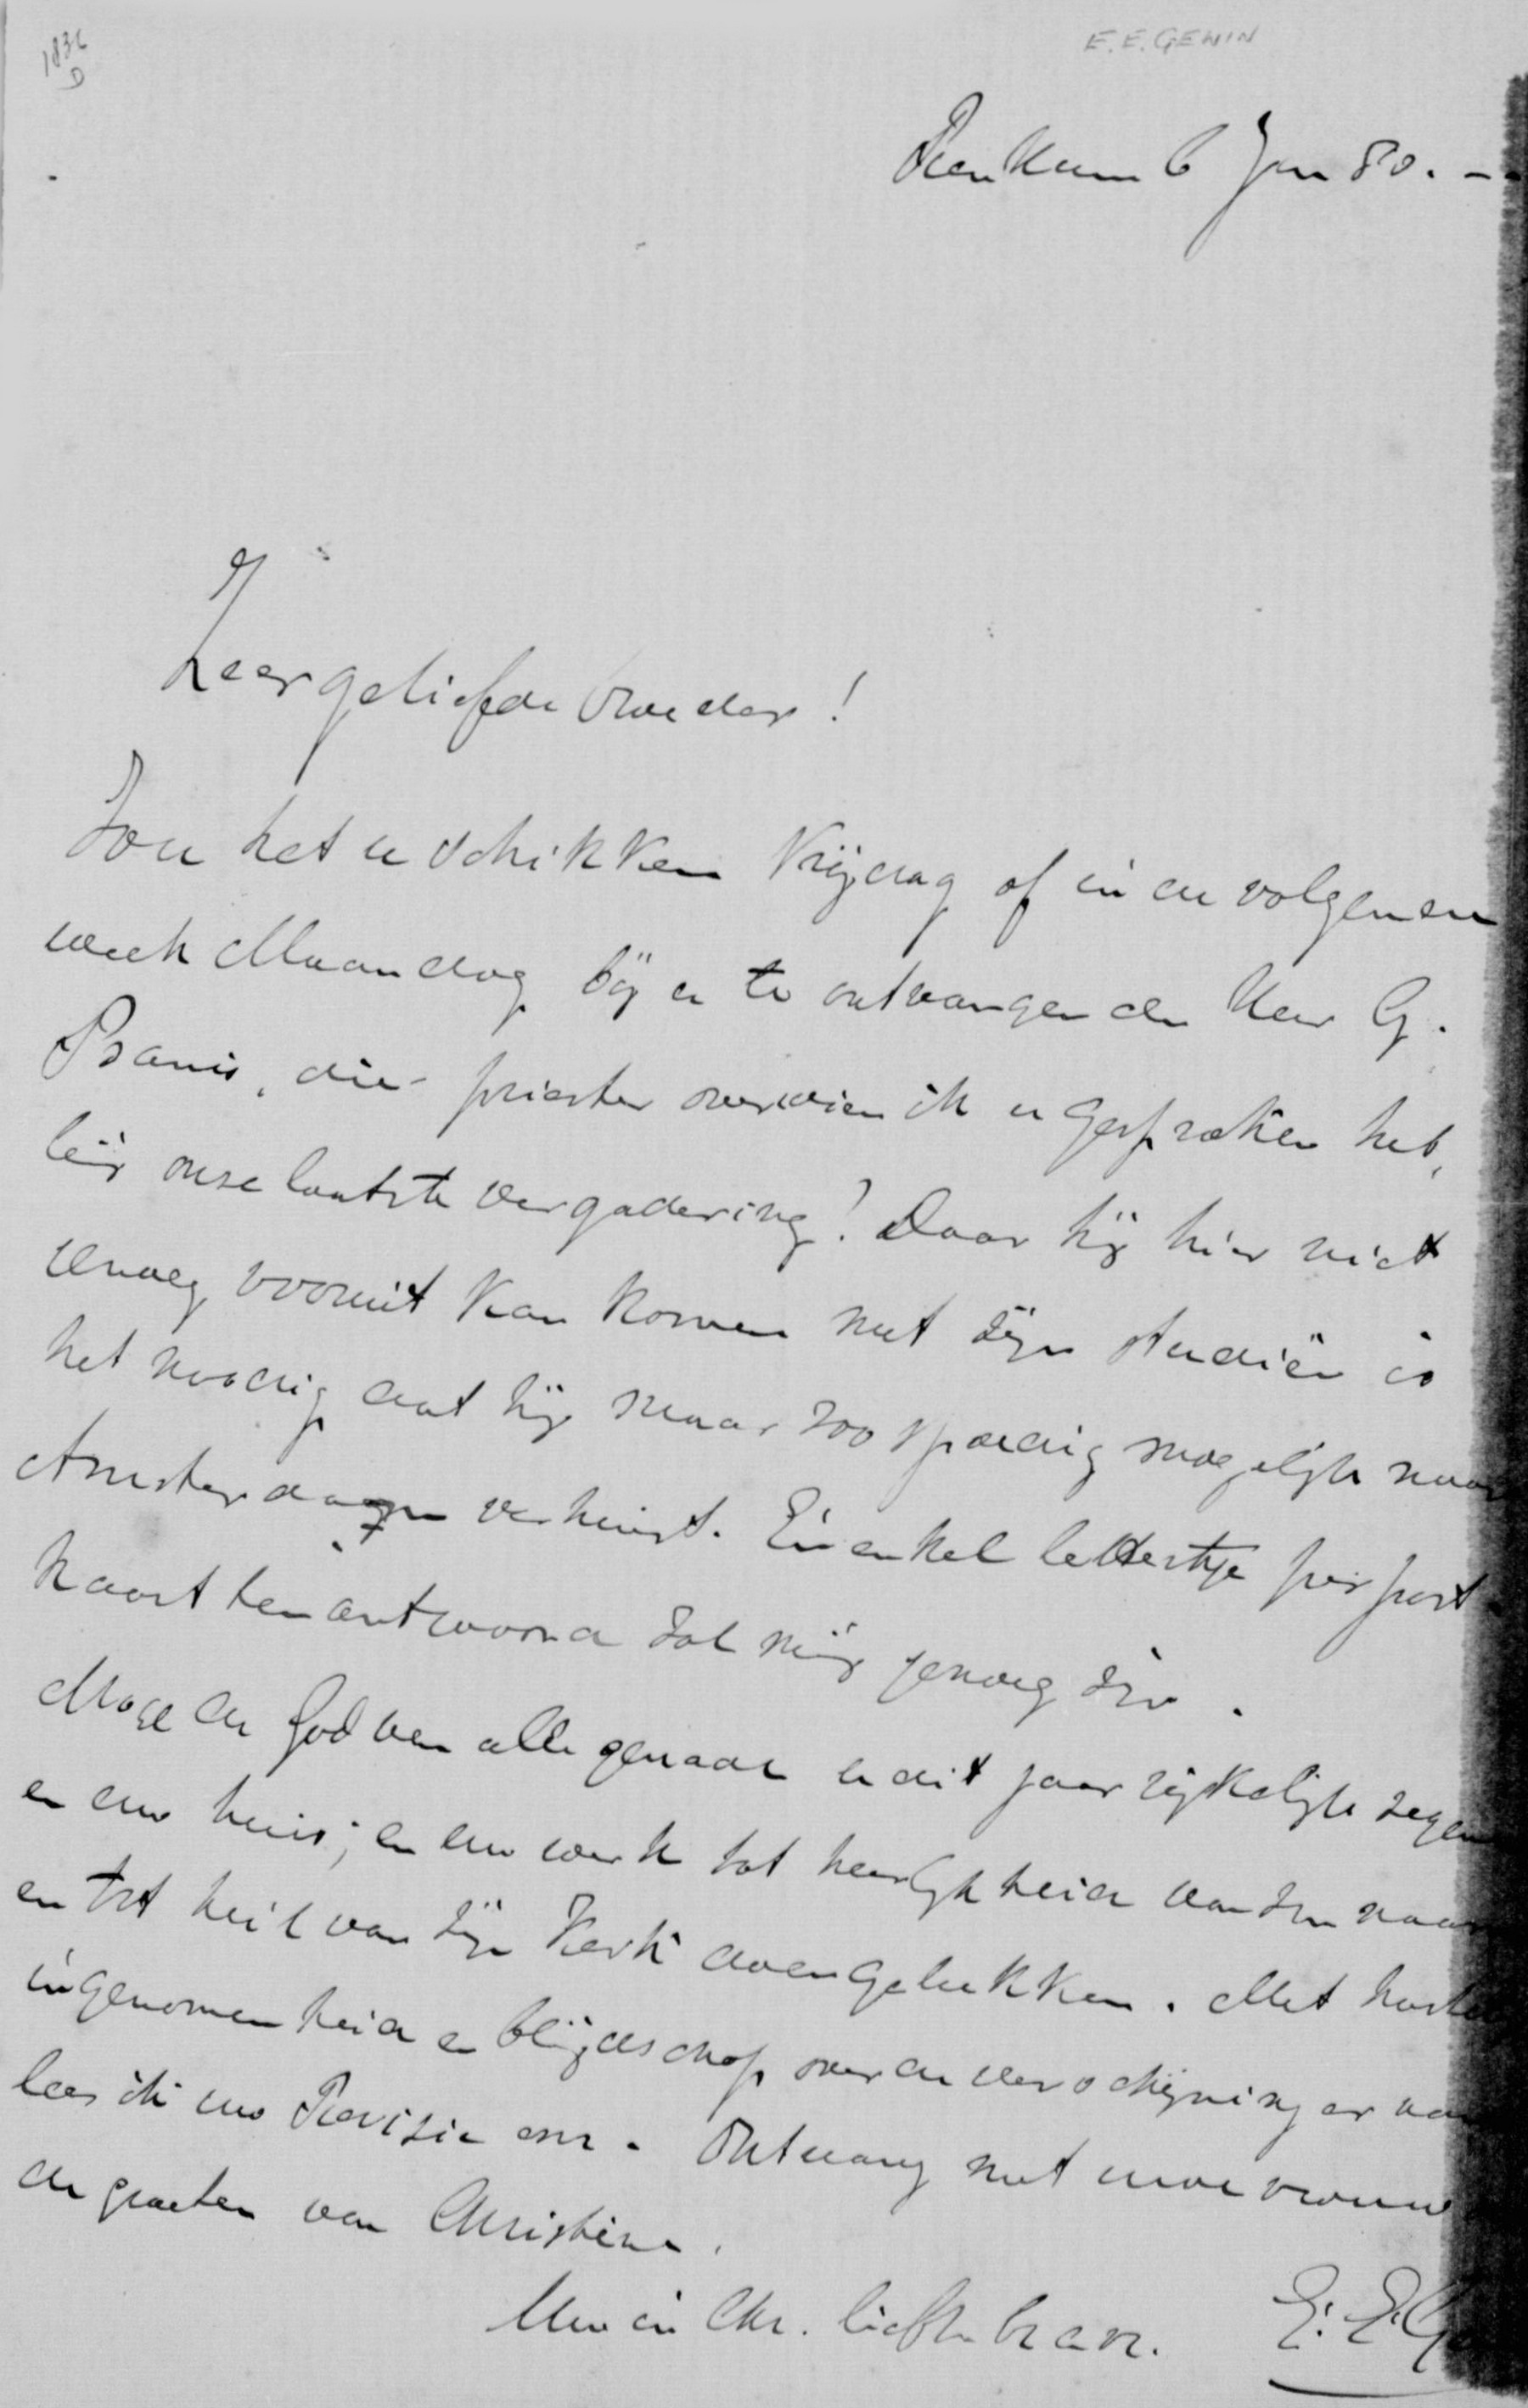 1836
D
E. E. GEWIN
Renkum 6 Jan 80. --
Zeer geliefde broeder!
Zou het u schikken Vrijdag of in de volgende
week Maandag bij u te ontvangen den Heer G.
die priester over wien ik u gesproken heb,
bij onze laatste vergadering! Daar hij hier niet
genoeg vooruit kan komen met zijn studiën is
het noodig dat hij maar zoo spoedig mogelijk naar
Amsterdam verhuist. Een enkel lettertje per post-
kaart ten antwoord zal mij genoeg zijn.
Moge de God van alle genade u dit jaar rijkelijk zegen
en uw huis; en uw werk tot heerlijkheid van zijn naam
en tot heil van zijn Kerk doen gelukken. Met
ingenomenheid en blijdschap over de verschijning er van
lees ik uw Revisie. Ontvang met uwe vrouw
de groeten van Christine.
Uw in Chr. liefh. br.
E. E. Ge